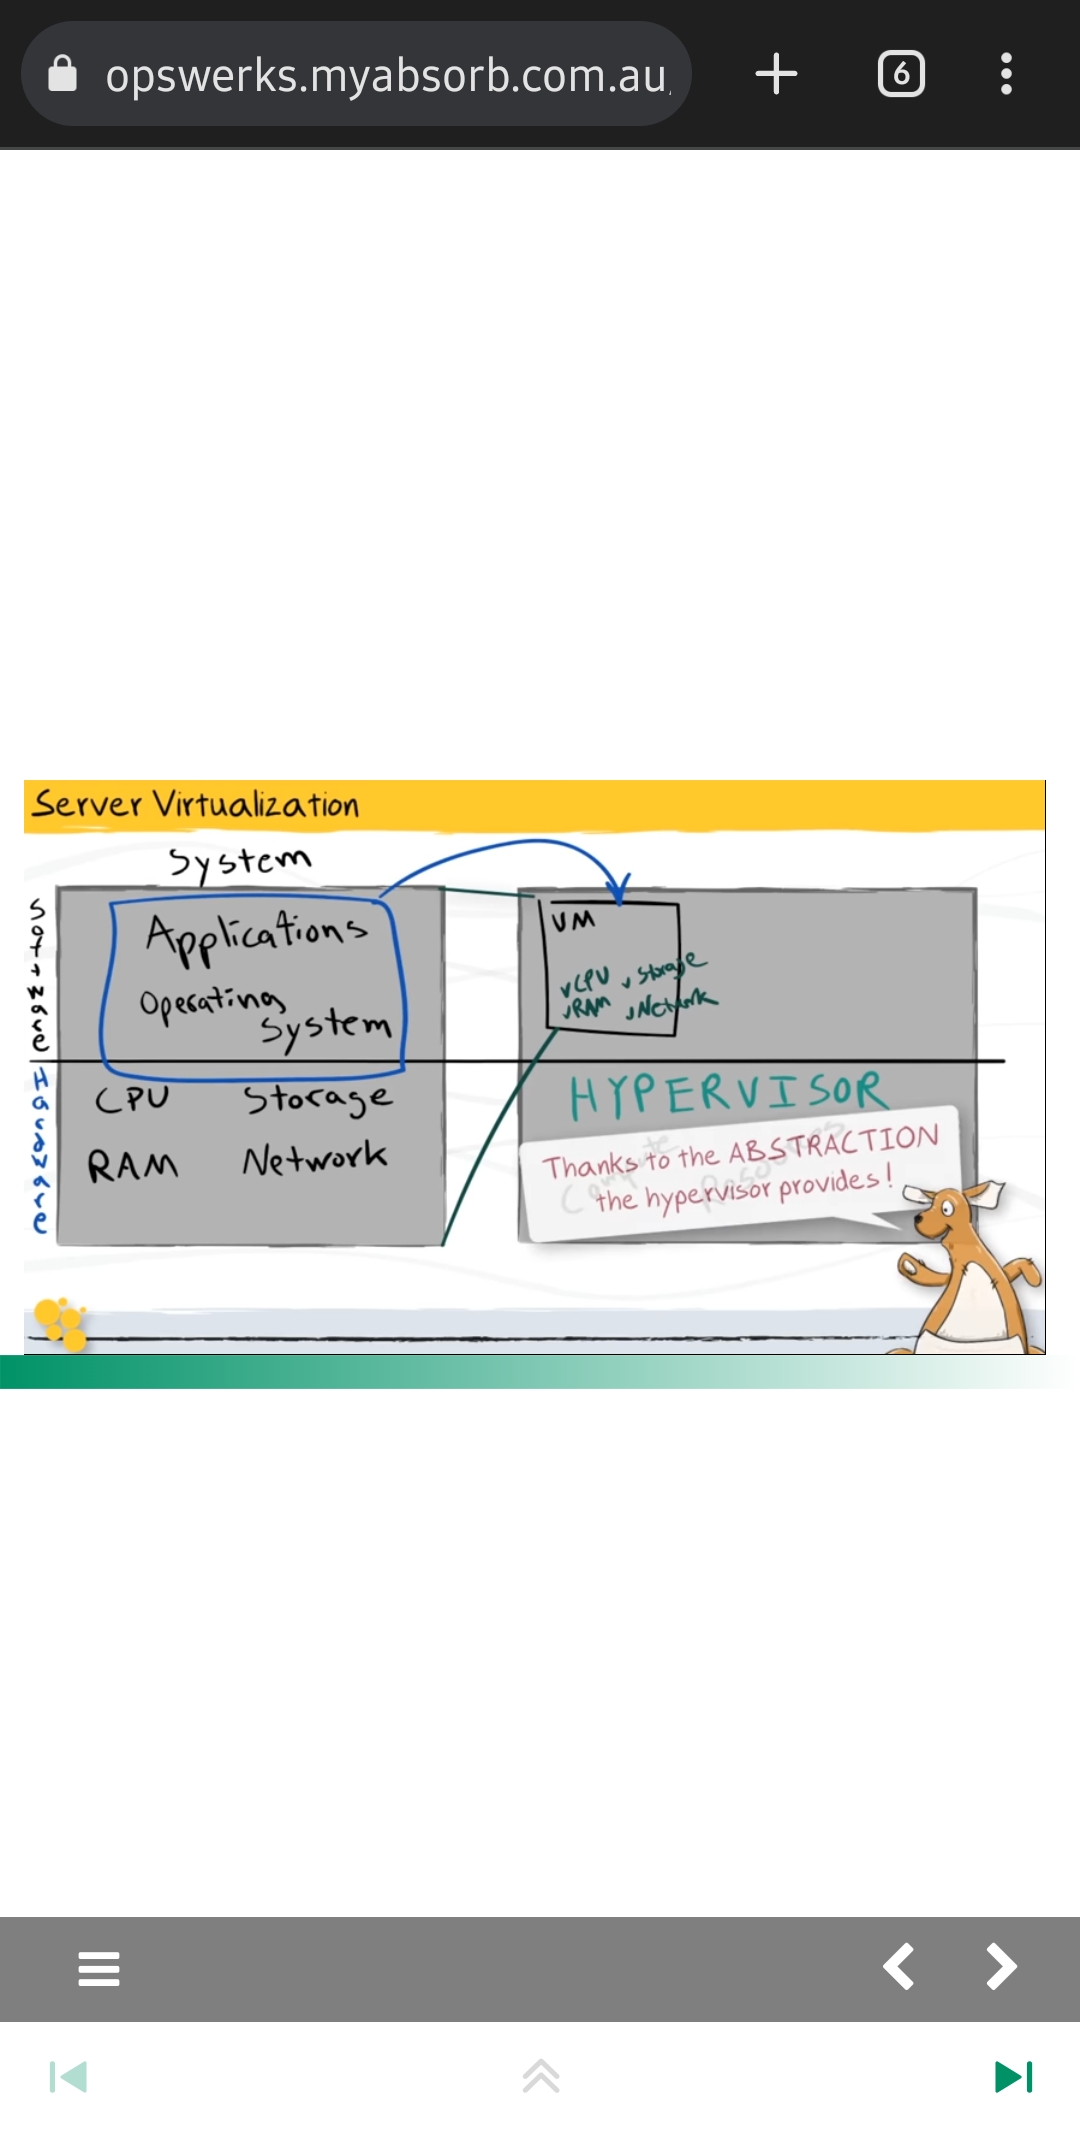 opswerks.myabsorb.com.au
6
Server Virtualization
System
Software
Applications
Operating
System
Hardware
CPU Storage
RAM Network
VM
vCPU vStorage
vRAM vNetwork
HYPERVISOR
Compute Resources
Thanks to the ABSTRACTION
the hypervisor provides!